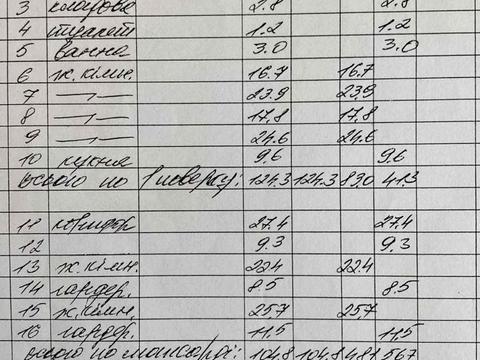 3 кладова 2.8 2.8
4 туалет 1.2 1.2
5 ванна 3.0 3.0
6 ж.кімн. 16.7 16.7
7 —,,— 23.9 23.9
8 —,,— 17,8 17,8
9 —,,— 24.6 24.6
10 кухня 9.6 9.6
Усього по І поверху: 124.3 124.3 83.0 41.3
11 коридор 27.4 27.4
12 9.3 9.3
13 ж.кімн. 22.4 22.4
14 гардер. 8.5 8.5
15 ж.кімн. 25.7 25,7
16 гардер. 11,5 11,5
Усього по мансарді: 104.8 104.8 48.1 56.7